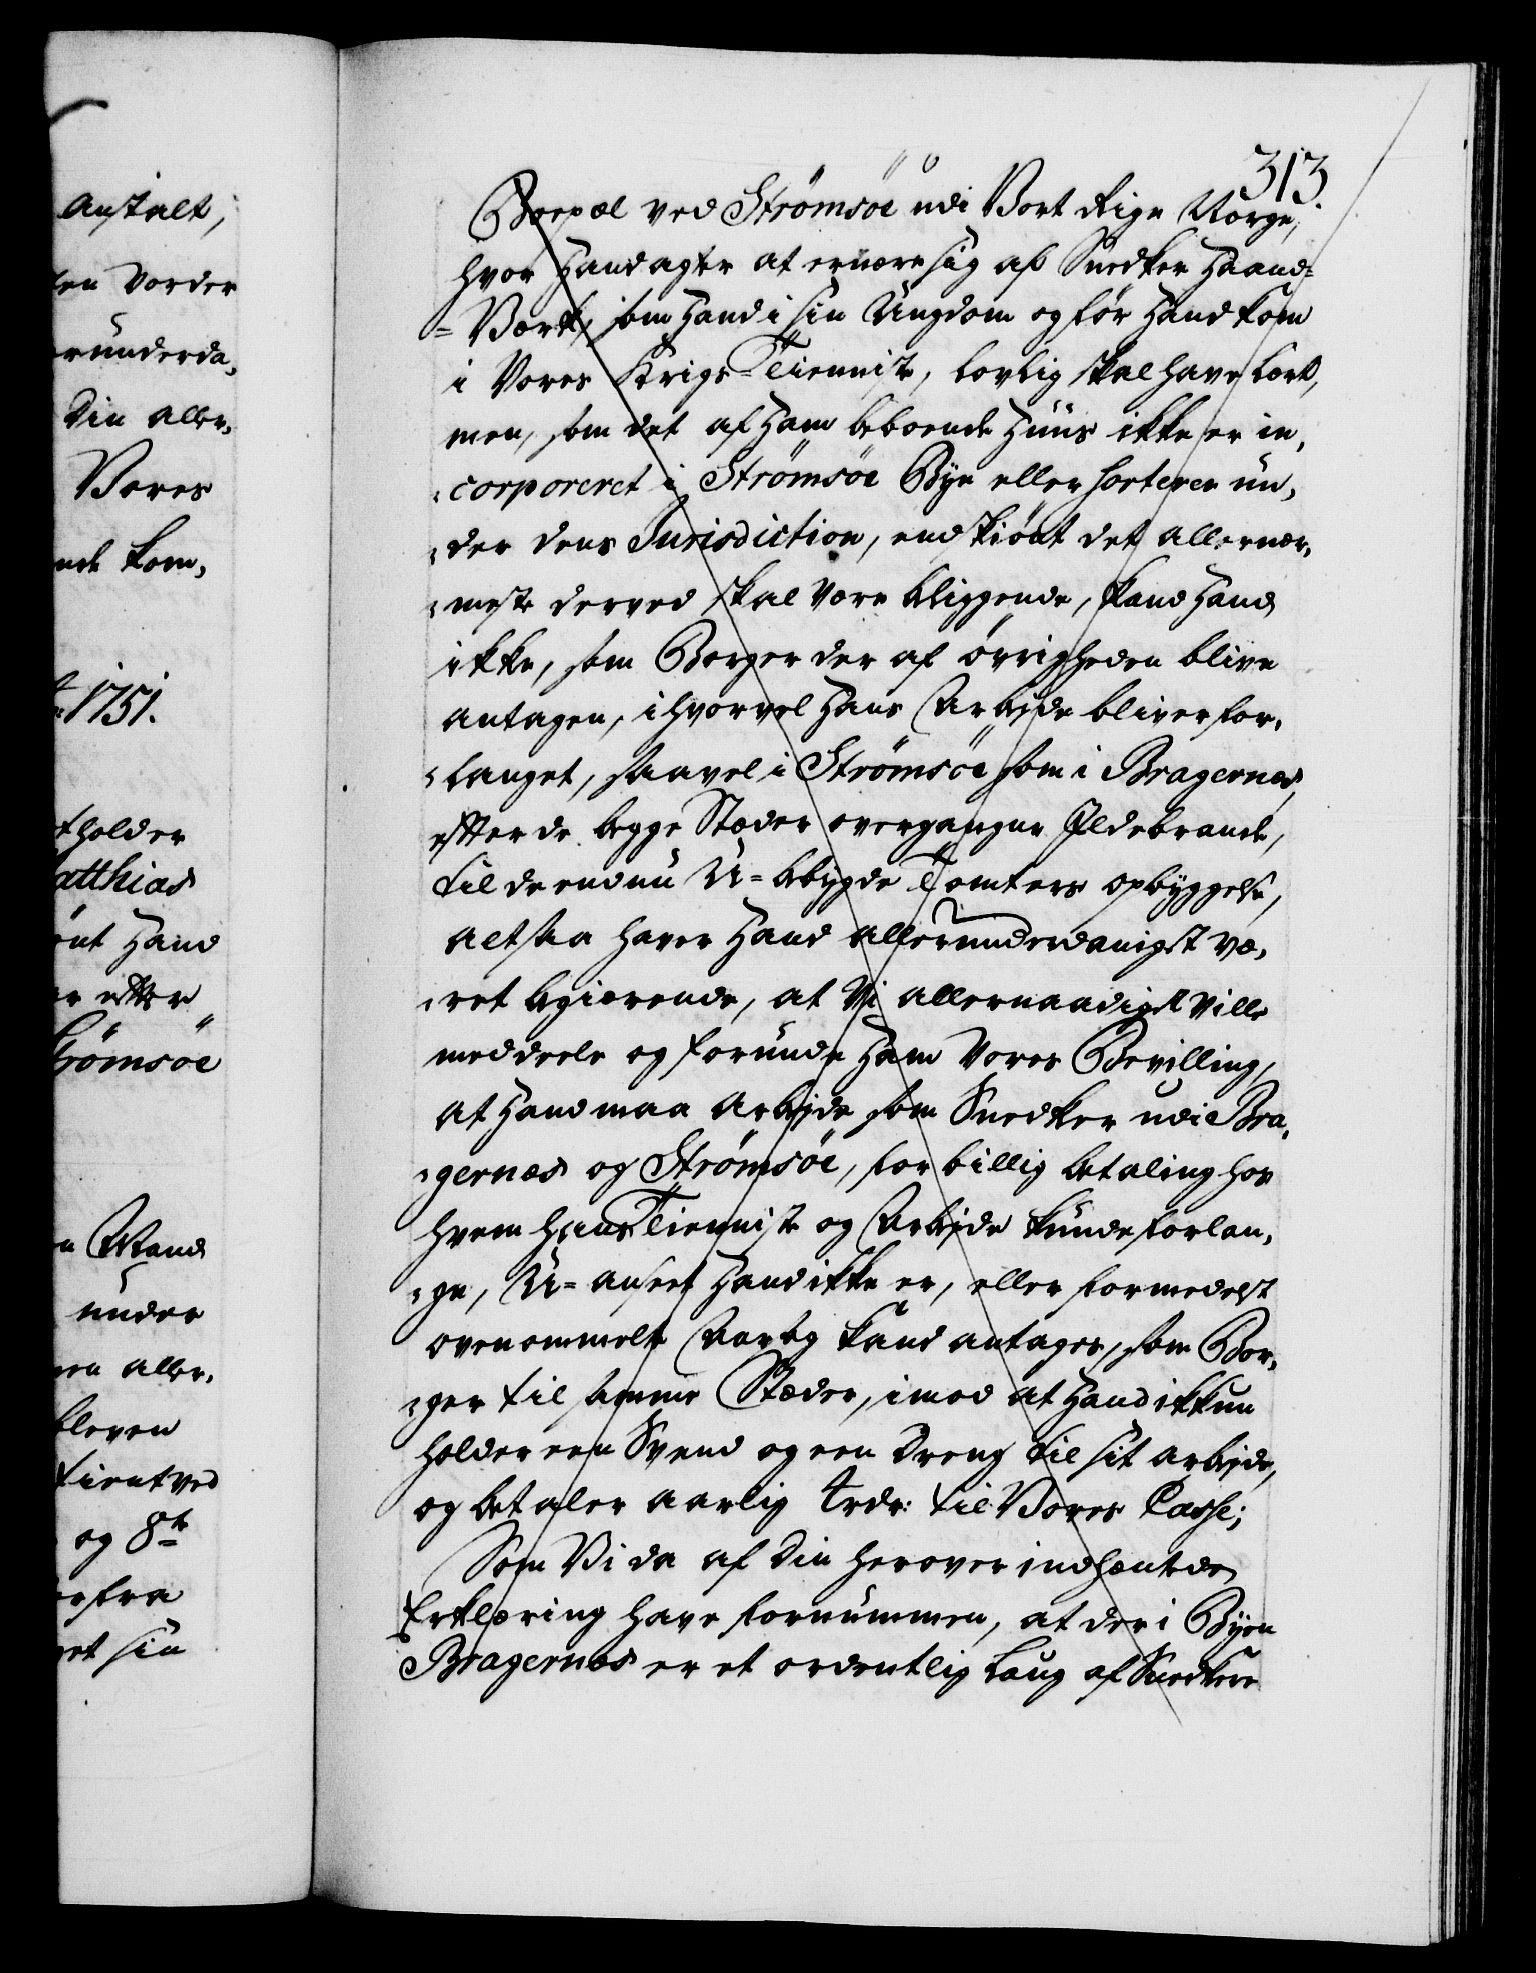 anstalt,
ten vorder
erunderda,
Din aller,
Vores
nde kom,
1751.
tholder
atthias
ent Hand
er efter
Strömsöe
n Mand
under
nen aller,
bleven
tient ved
og 8te
erfra
get sin
313.
Boepæl ved Strömsöe udi Vort Rige Norge,
hvor Hand agter at ernære sig af Snedker Haand=
=Værk, som Hand i sin Ungdom og før Hand kom
i Vores Krigs-Tienniste, lovlig skal have lært,
men, som det af Ham beboende Huus ikke er in,
corporeret i Strömsöe Bye eller sorterer un,
der dens Jurisdiction, endskiönt det allernær,
meste derved skal være beliggende, kand Hand
ikke, som Borger der af övrigheden blive
antagen, ihvorvel Hans Arbejde bliver for,
langet, saavel i Strömsöe som i Bragernæs,
efter de begge Stæder overgangne Ildebrande,
til de endnu U=bebygde Tomters opbyggelse,
altsaa haver Hand allerunderdanigst væ,
ret begiærende, at Vi allernaadigst ville
meddeele og forunde Ham Vores Bevilling,
at Hand maa arbejde som Snedker udi Bra,
gernæs og Strömsöe, for billig betaling hos
hvem hans Tienniste og Arbejde kunde forlan,
ge, U=anseet Hand ikke er, eller formedelst
ovenommelte Aarsag kand antages, som Bor,
ger til samme Stæder, imod at Hand ikkun
holder een Svend og een Dreng til sit arbejde,
og betaler aarlig 4 rdr: til Vores Casse;
Som Vi da af Din herover indhentede
Erklæring have fornummen, at der i Byen
Bragernæs er et ordentlig Laug af Snedkere